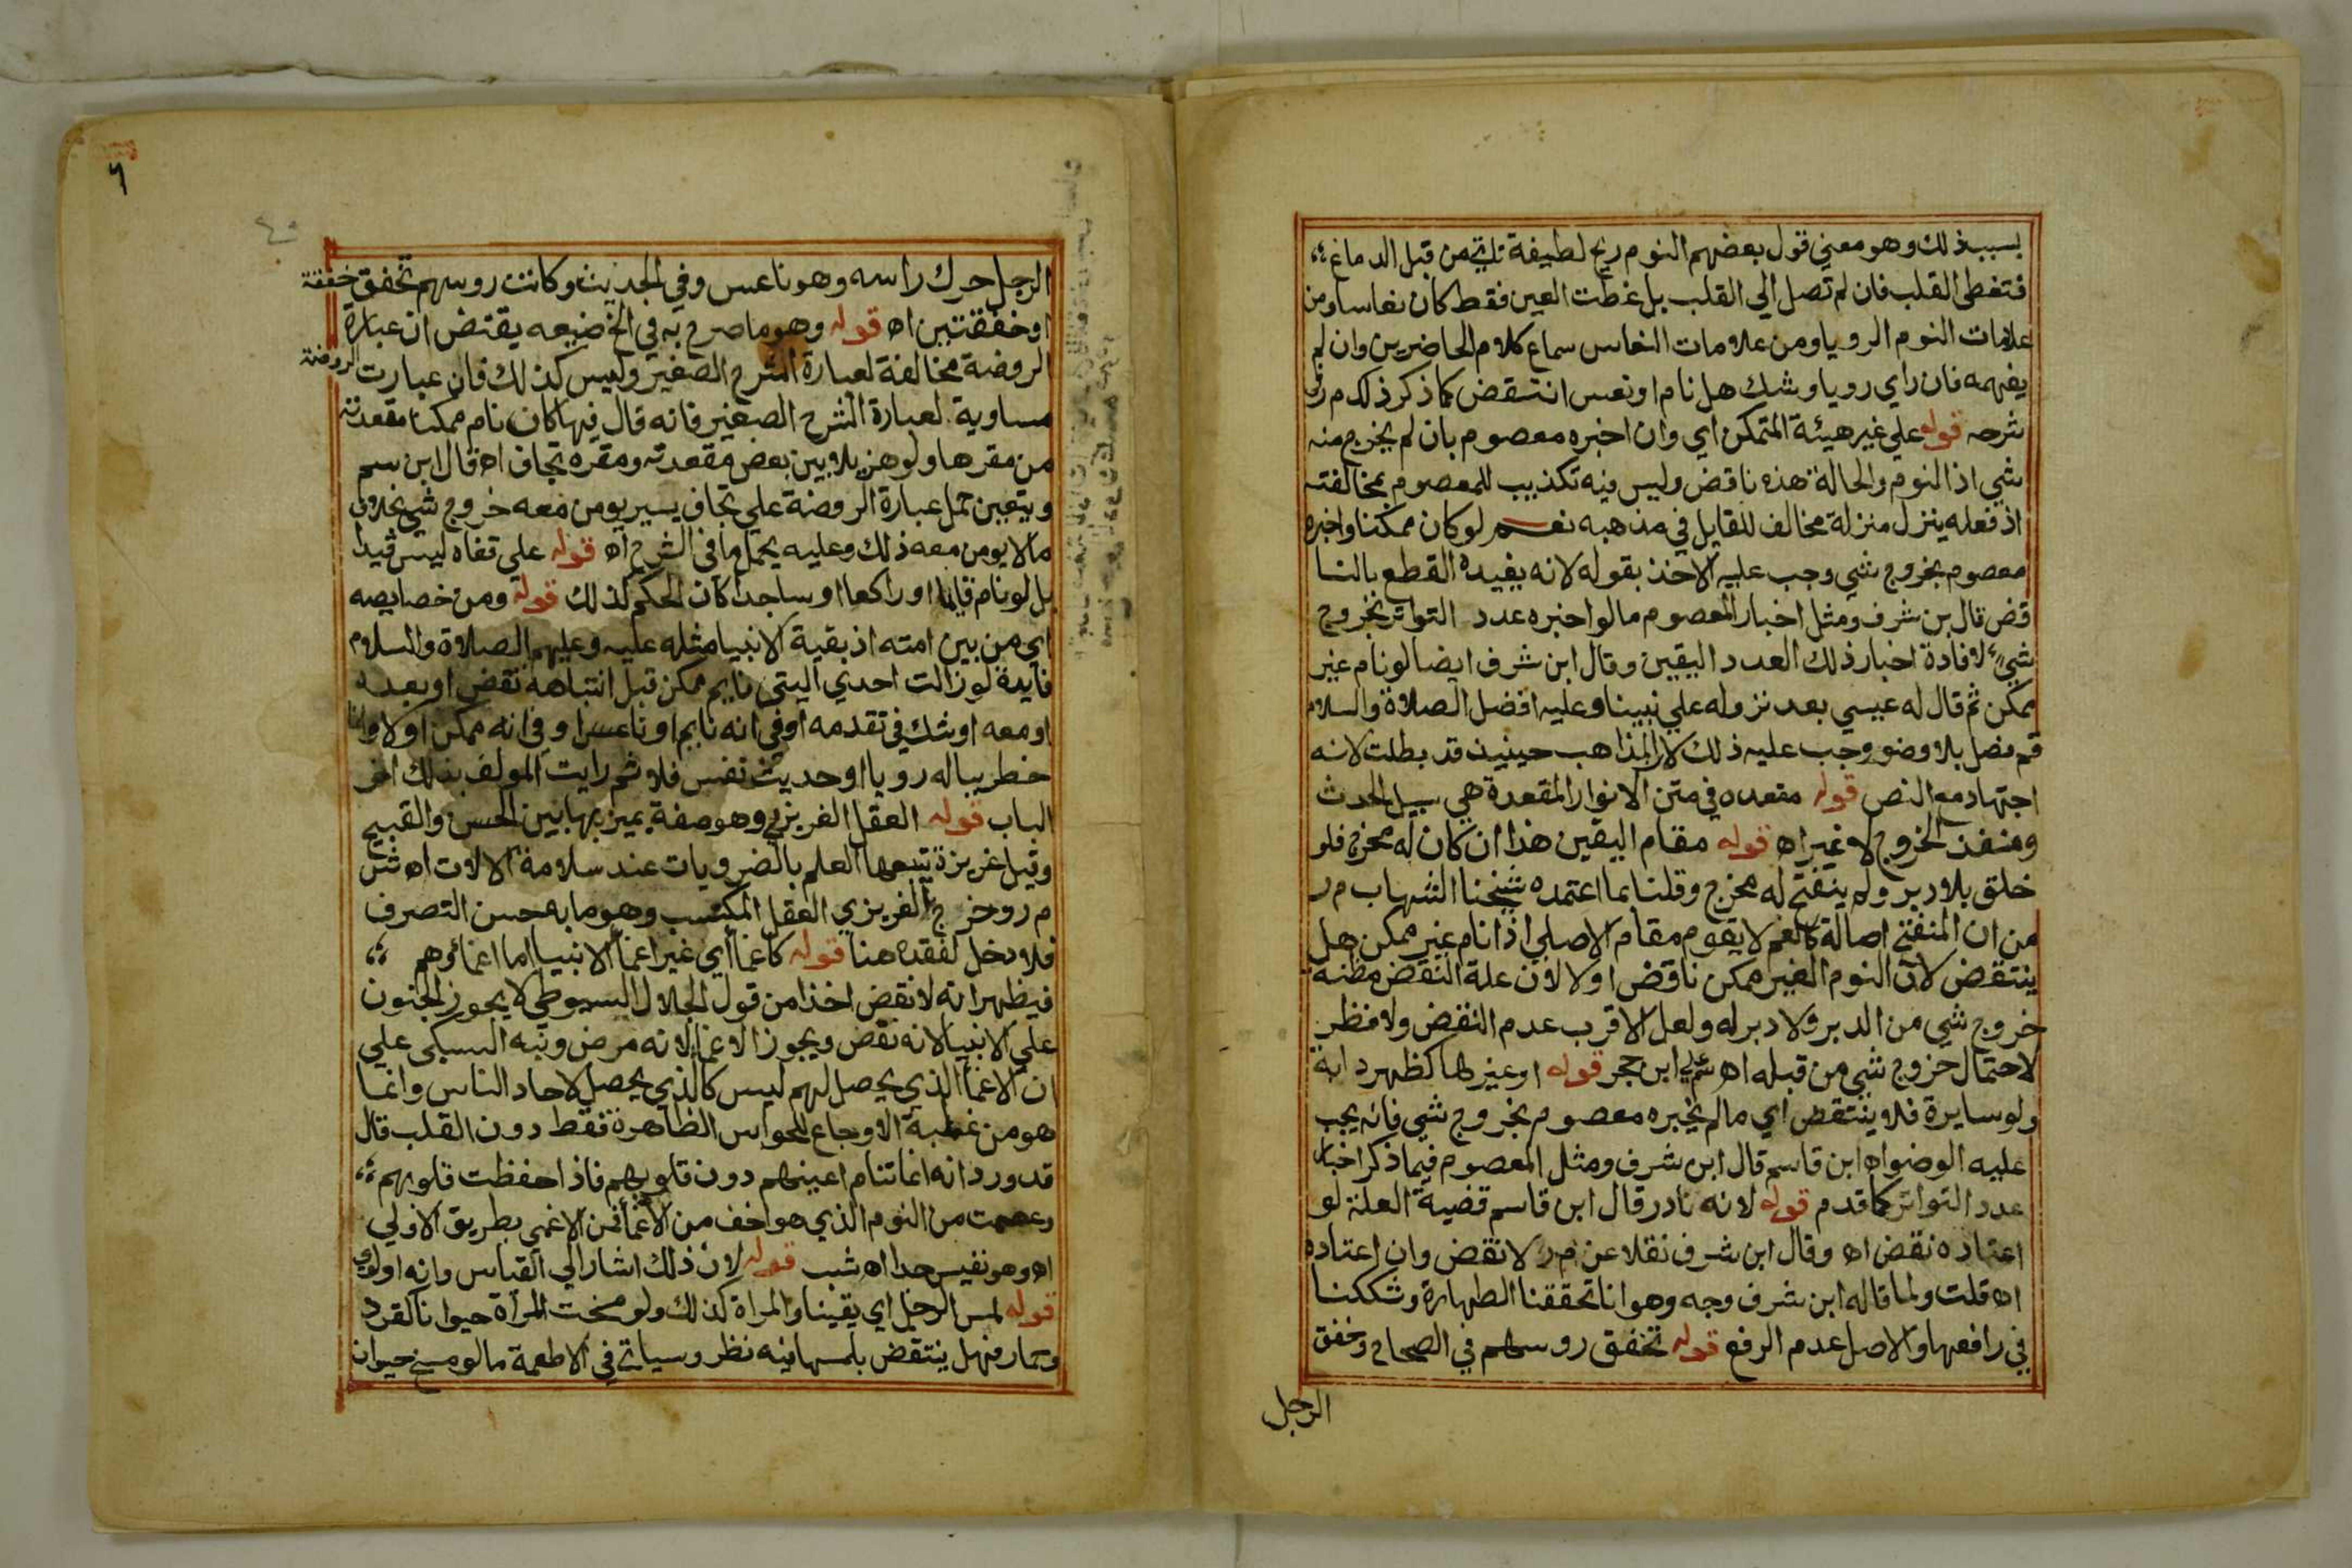 بسبب ذلك وهو معني قول بعضهم النوم ريح لطيفة تاتي من قبل الدماغ
فتغطي القلب فان لم تصل الي القلب بل غطت العين فقط كان نعاسا ومن
علامات النوم الرويا ومن علامات النعاس سماع كلام الحاضرين وان لم
يفهمه فان راي رويا وشك هل نام او نعس انتقض كما ذكر ذلك م ر في
شرحه قوله علي غير هيئة المتمكن اي وان اخبره معصوم بان لم يخرج منه
شي اذ النوم والحالة هذه ناقض وليس فيه تكذيب للمعصوم بمخالفته
اذ فعله ينزل منزلة مخالف للقايل في مذهبه نعم لو كان ممكنا واخبره
معصوم بخروج شي وجب عليه الاخذ بقوله لانه يفيده القطع بالنا
قض قال بن شرف ومثل اخبار المعصوم ما لو اخبره عدد التواتر بخروج
شي لافادة اخبار ذلك العدد اليقين وقال ابن شرف ايضا لو نام غير
ممكن ثم قال له عيسي بعد نزوله علي نبينا وعليه افضل الصلاة والسلام
قم فصل بلا وضو وجب عليه ذلك لان المذاهب حينيذ قد بطلت لانه
اجتهاد مع النص قوله مقعده في متن الانوار المقعدة هي سبيل الحدث
ومنفذ الخروج لا غير اه قوله مقام اليقين هذا ان كان له مخرج فلو
خلق بلا دبر ولم ينفتح له مخرج وقلنا بما اعتمده شيخنا الشهاب م ر
من ان المنفتح اصالة كالفم لا يقوم مقام الاصلي اذا نام غير ممكن هل
ينتقض لان النوم الغير ممكن ناقض او لا لان علة النقض مظنة
خروج شي من الدبر ولا دبر له ولعل الاقرب عدم النقض ولا منظر
لاحتمال خروج شي من قبله اه شم علي ابن حجر قوله او غيرها كظهر دابة
ولو سايرة فلا ينتقض اي ما لم يخبره معصوم بخروج شي فانه يجب
عليه الوضو اه ابن قاسم قال ابن شرف ومثل المعصوم فيما ذكر اخبار
عدد التواتر كما قدم قوله لانه نادر قال ابن قاسم قضية العلة لو
اعتاده نقض اه وقال ابن شرف نقلا عن م ر لا نقض وان اعتاده
اه قلت ولما قاله ابن شرف وجه وهو انا تحققنا الطهارة وشككنا
في رافعها والاصل عدم الرفع قوله تخفق روسهم في الصحاح وخفق
الرجل
٦
٤٠
الرجل حرك راسه وهو ناعس وفي الحديث وكانت روسهم تخفق خفقة
او خفقتين اه قوله وهو ما صرح به في الخ صنيعه يقتض ان عبارة
الروضة مخالفة لعبارة الشرح الصغير وليس كذلك فان عبارت الروضة
مساوية لعبارة الشرح الصغير فانه قال فيها كان نام ممكنا مقعدته
من مقرها ولو هزيلا بين بعض مقعدته ومقره تجاف اه قال ابن سم
ويتعين حمل عبارة الروضة علي تجاف يسير يومن معه خروج شي بخلاف
ما لا يومن معه ذلك وعليه يحمل ما في الشرح اه قوله علي قفاه ليس قيدا
بل لو نام قايما او راكعا او ساجدا كان الحكم كذلك قوله ومن خصايصه
اي من بين امته اذ بقية الانبيا مثله عليه وعليهم الصلاة والسلام
فايدة لو زالت احدي اليتي نايم ممكن قبل انتباهه نقض او بعده
او معه او شك في تقدمه او في انه نايم او ناعس او في انه ممكن او لا واذا
خطر بباله رويا او حديث نفس فلا ثم رايت المولف بذلك اخر
الباب قوله العقل الغريزي وهو صفة يميز بها بين الحسن والقبيح
وقيل غريزة يتبعها العلم بالضرويات عند سلامة الالات اه ش
م ر وخرج بالغريزي العقل المكتسب وهو ما به حسن التصرف
فلا دخل لفقده هنا قوله كاغما اي غير اغما الانبيا اما اغماؤهم
فيظهر انه لا نقض اخذا من قول الجلال السيوطي لا يجوز الجنون
علي الانبيا لانه نقض ويجوز الاغما لانه مرض ونبه السبكي علي
ان الاغما الذي يحصل لهم ليس كالذي يحصل لاحاد الناس وانما
هو من غلبة الاوجاع للحواس الظاهرة فقط دون القلب قال
قد ورد انه انما تنام اعينهم دون قلوبهم فاذا حفظت قلوبهم
وعصمت من النوم الذي هو اخف من الاغما فمن الاغمي بطريق الاولي
اه وهو نفيس جدا اه شب قوله لان ذلك اشار الي القياس وانه اولوي
قوله لمس الرجل اي يقينا والمراة كذلك ولو مسخت المراة حيوانا كقرد
وحمار فهل ينتقض بلمسها فيه نظر وسياتي في الاطعمة ما لو مسخ حيوان